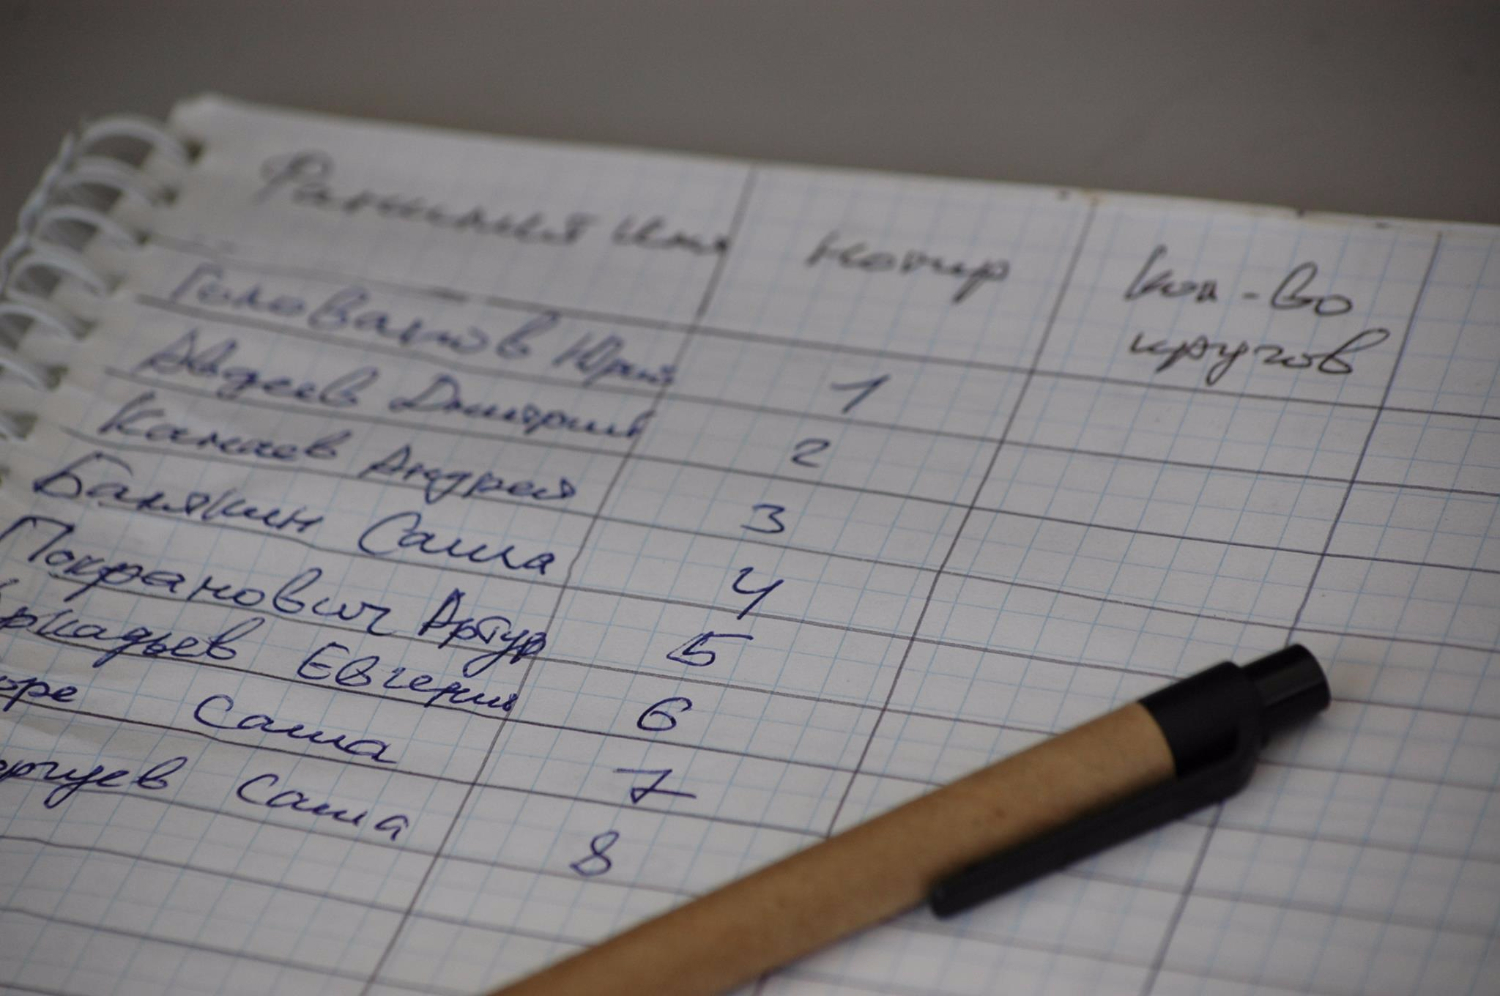 Фамилия имя номер Кол-во кругов
Голованов Юрий 1
Авдеев Дмитрий 2
Канаев Андрей 3
Балякин Саша 4
Покранович Артур 5
Аркадьев Евгений 6
Саша 7
Саша 8